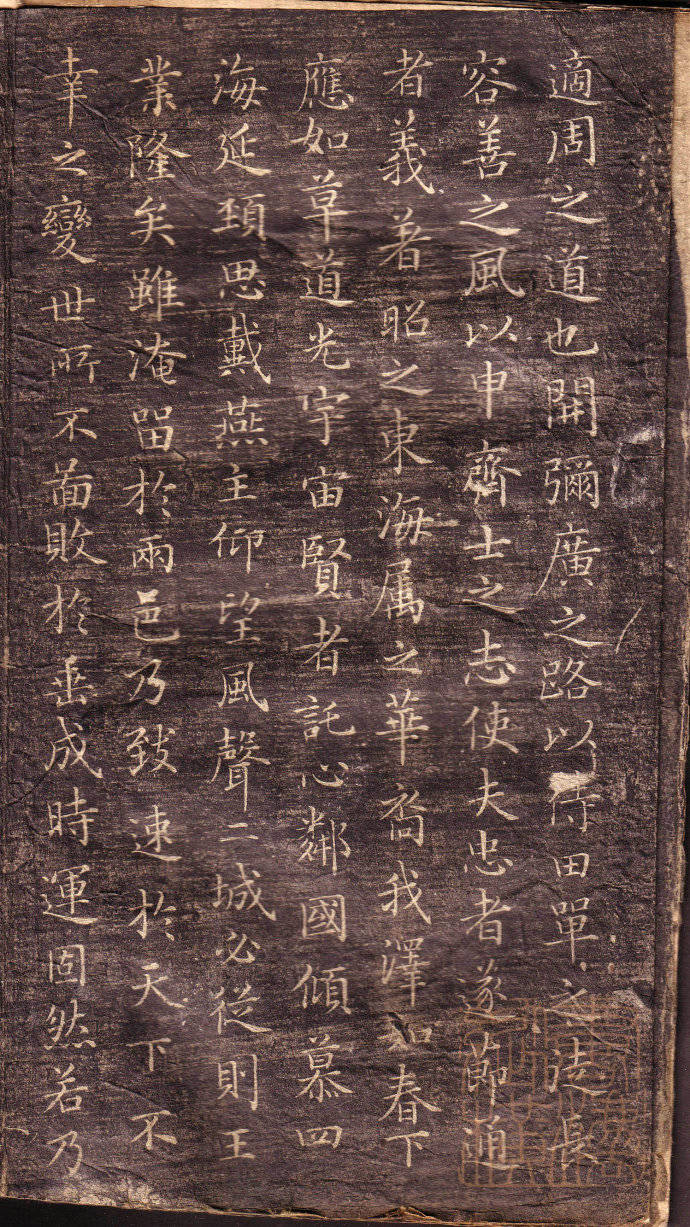 適周之道也開彌廣之路以待田單之徒長
容善之風以申齊士之志使夫忠者遂節通
者義著昭之東海属之華裔我澤如春下
應如草道光宇宙賢者託心鄰國傾慕四
海延頚思戴燕主仰望風聲二城必從則王
業隆矣雖淹留於兩邑乃致速於天下不
幸之變世所不啚敗於垂成時運固然若乃